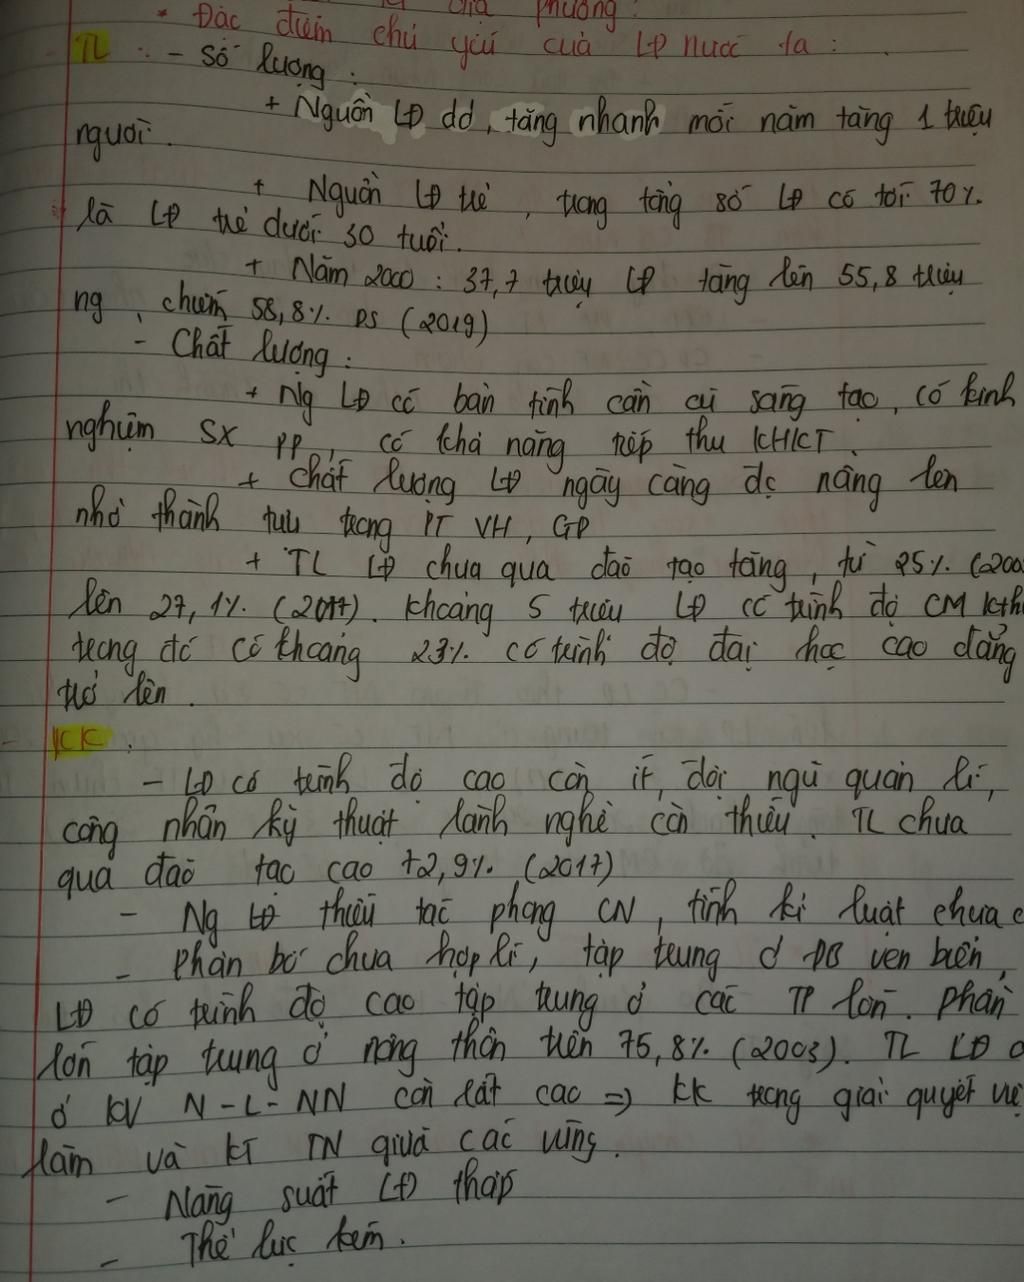 địa phương:
* Đặc điểm chủ yếu của LĐ nước ta:
TL: - Số lượng:
+ Nguồn LĐ dd, tăng nhanh mỗi năm tăng 1 triệu
người.
+ Nguồn LĐ trẻ, trong tổng số LĐ có tới 70%
là LĐ trẻ dưới 30 tuổi.
+ Năm 2000: 37,7 triệu LĐ tăng lên 55,8 triệu
ng, chiếm 58,8% DS (2019)
- Chất lượng:
+ Ng LĐ có bản tính cần cù sáng tạo, có kinh
nghiệm SX pp, có khả năng tiếp thu KHKT.
+ Chất lượng LĐ ngày càng đc nâng lên
nhờ thành tựu trong PT VH, GD
+ TL LĐ chưa qua đào tạo tăng, từ 25% (200
lên 27,1% (2017). Khoảng 5 triệu LĐ có trình độ CM kth
trong đó có khoảng 23% có trình độ đại học cao đẳng
trở lên.
- KK:
- LĐ có trình độ cao còn ít, đội ngũ quản lí,
công nhân kỹ thuật lành nghề còn thiếu. TL chưa
qua đào tạo cao 72,9% (2017)
- Ng LĐ thiếu tác phong CN, tính kỉ luật chưa c
- Phân bố chưa hợp lí, tập trung ở ĐB ven biển,
LĐ có trình độ cao tập trung ở các TP lớn. Phần
lớn tập trung ở nông thôn trên 75,8% (2003). TL LĐ
ở KV N-L-NN còn rất cao => KK trong giải quyết việ
làm và KT TN giữa các vùng.
- Năng suất LĐ thấp
- Thể lực kém.